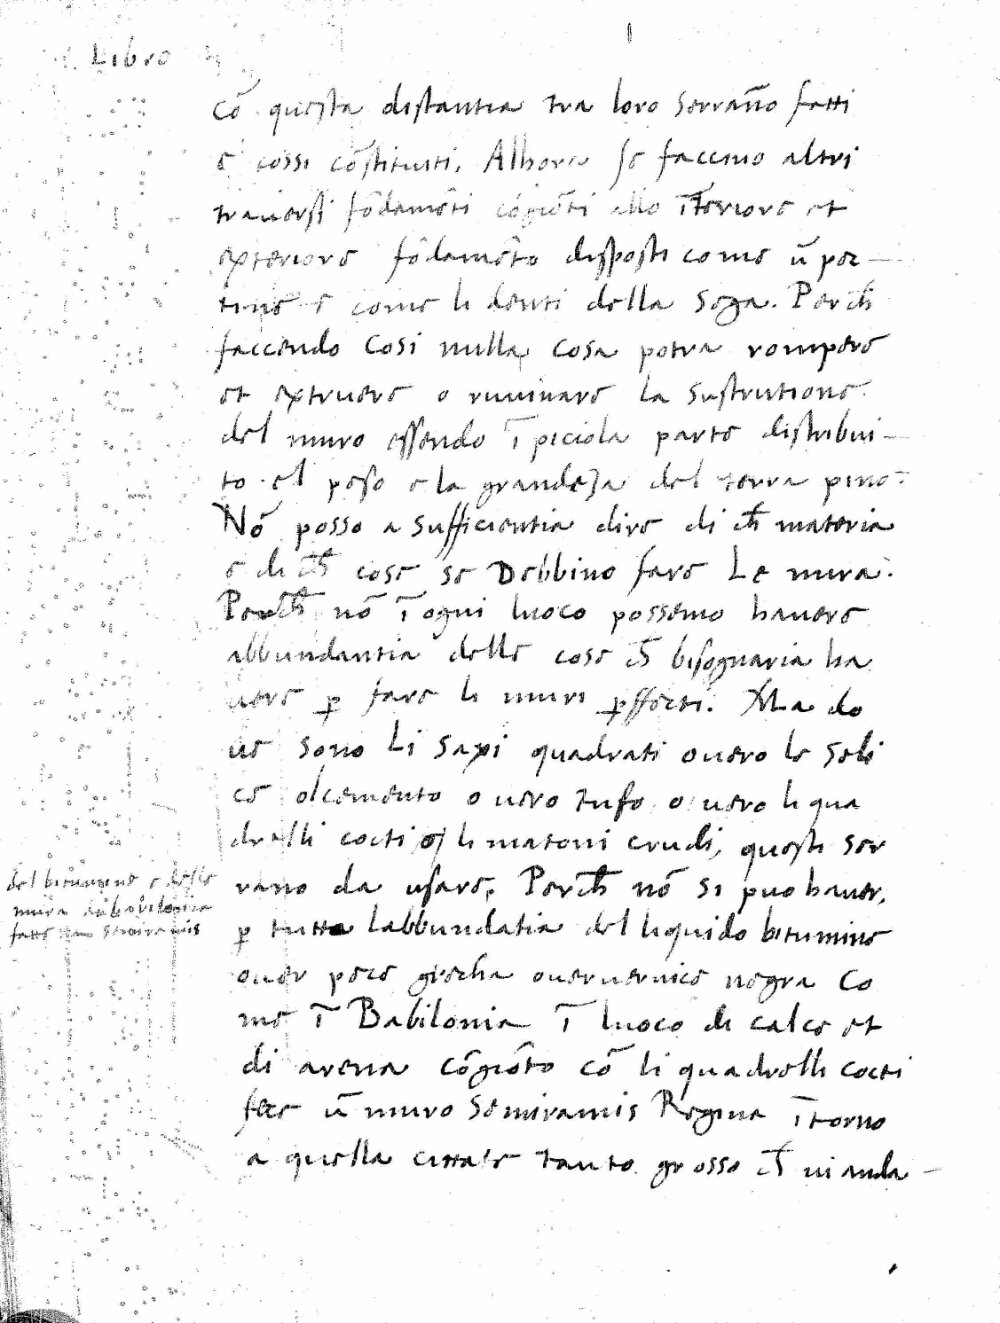 Libro
cō questa distantia tra loro serrāno fatti
e cossi cōstituiti. Alhora se faccino altri
traversi fōdamēti cōgiōti allo īteriore et
exteriore fōdamēto disposti come ū pec-
tine e come li denti della sega. Perch̄
faccendo cosi nulla cosa potra rompere
et extruere o ruuinare la sustrutione
del muro essendo ī piciola parte distribui-
to el peso e la grandeza del terra pino.
Nō posso a sufficientia dire di ch̄ materia
e di ch̄ cose se Debbino fare Le mura.
Perch̄ nō ī ogni luoco possemo havere
abbundantia delle cose ch̄ bisognaria ha
uere ꝑ fare li muri ꝑffecti. Ma do
ue sono Li saxi quadrati overo le seli
ce o l cemento o vero tufo o vero li qua
drelli cocti o li matoni crudi, questi ser
rano da usare. Perch̄ nō si puo haver,
ꝑ tutto labbundātia del liquido bitumine
over pece grecha over vernice negra Co
me ī Babilonia ī luoco di calce et
di arena cōgiōto cō li quadrelli cocti
fece ū muro Semiramis Regina ītorno
a quella cittate tanto grosso ch̄ vi anda-
del bitumine e delle
mura di babilonia
fatte da Semiramis